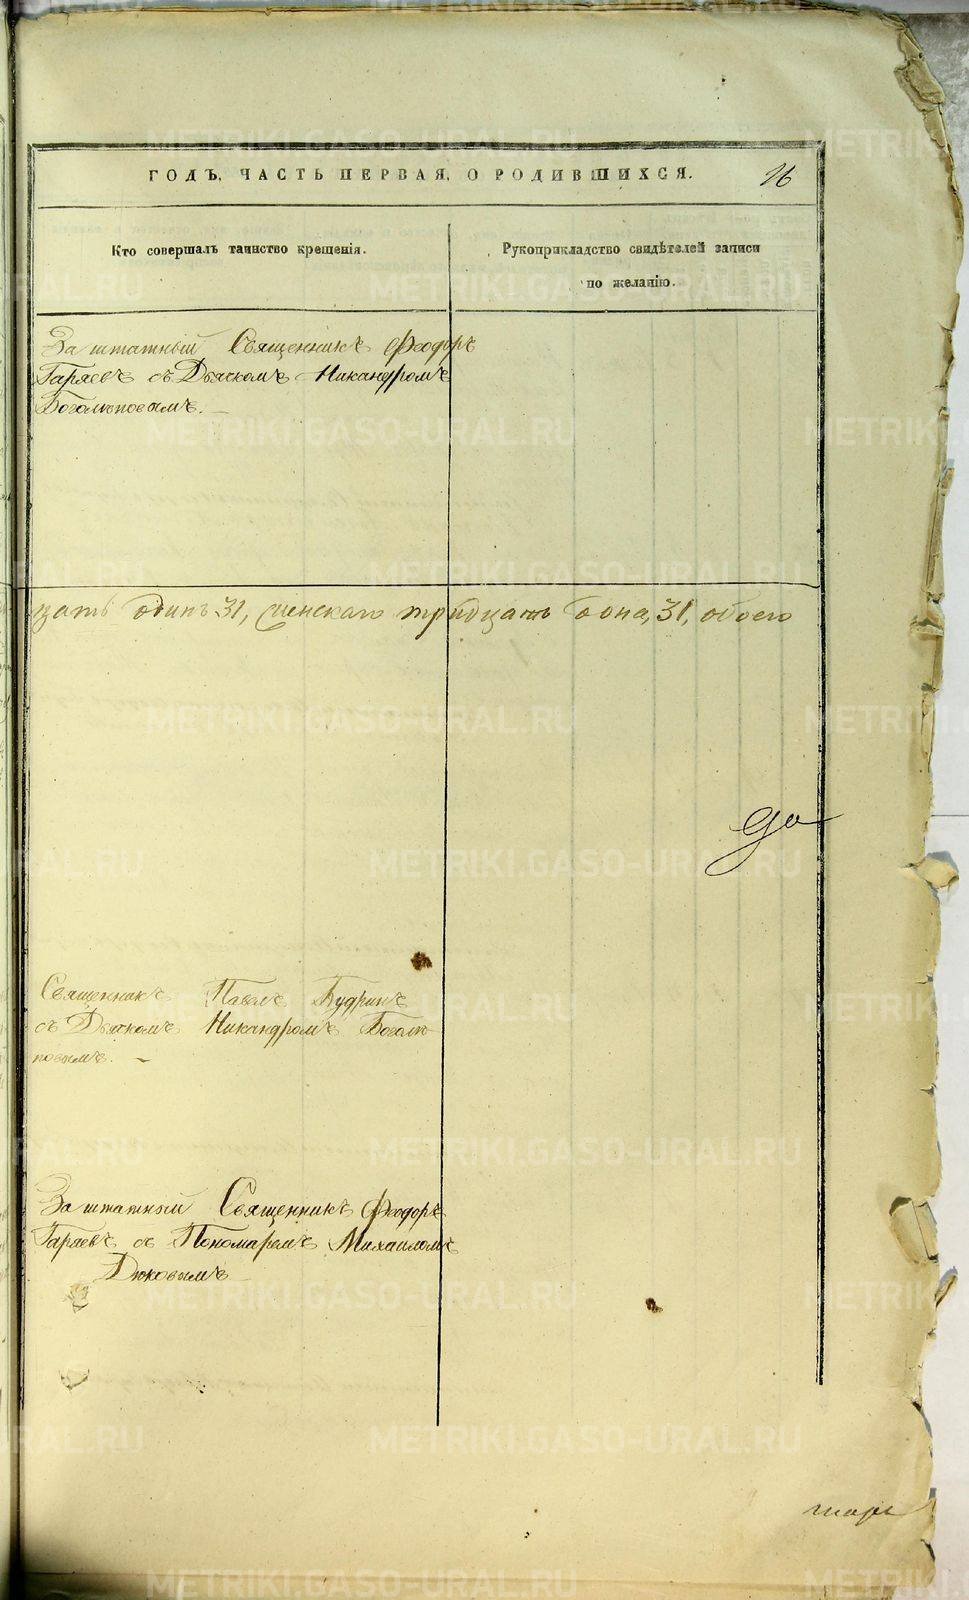 ГОДЪ, ЧАСТЬ ПЕРВАЯ, О РОДИВШИХСЯ.
26
Кто совершалъ таинство крещенія.
Рукоприкладство свидѣтелей записи
по желанію.
Заштатный Священникъ Феодоръ
Гаряевъ съ Дьячкомъ Никандромъ
Боголюповымъ. —
цать одинъ 31, женскаго тридцать одна, 31, обоего
Священникъ Павелъ Будринъ
съ Дьячкомъ Никандромъ Боголю-
повымъ. —
Заштатный Священникъ Феодоръ
Гаряевъ съ Пономаремъ Михаиломъ
Дюковымъ
METRIKI.GASO-URAL.RU